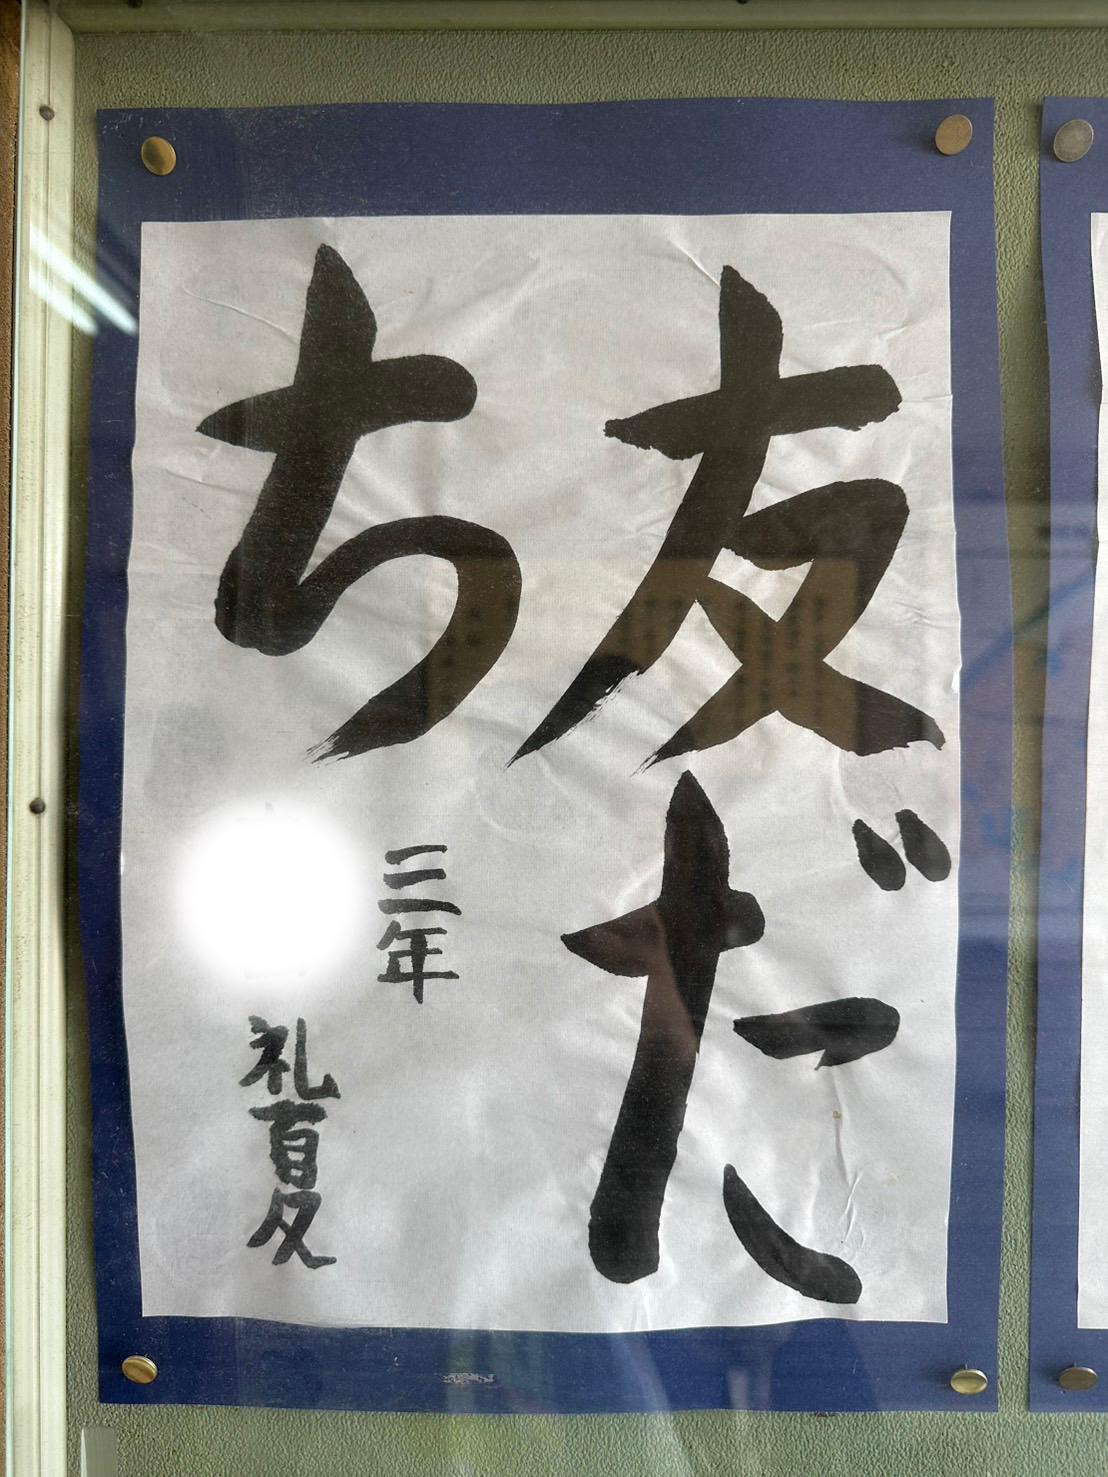 友だ
ち
三年
礼夏